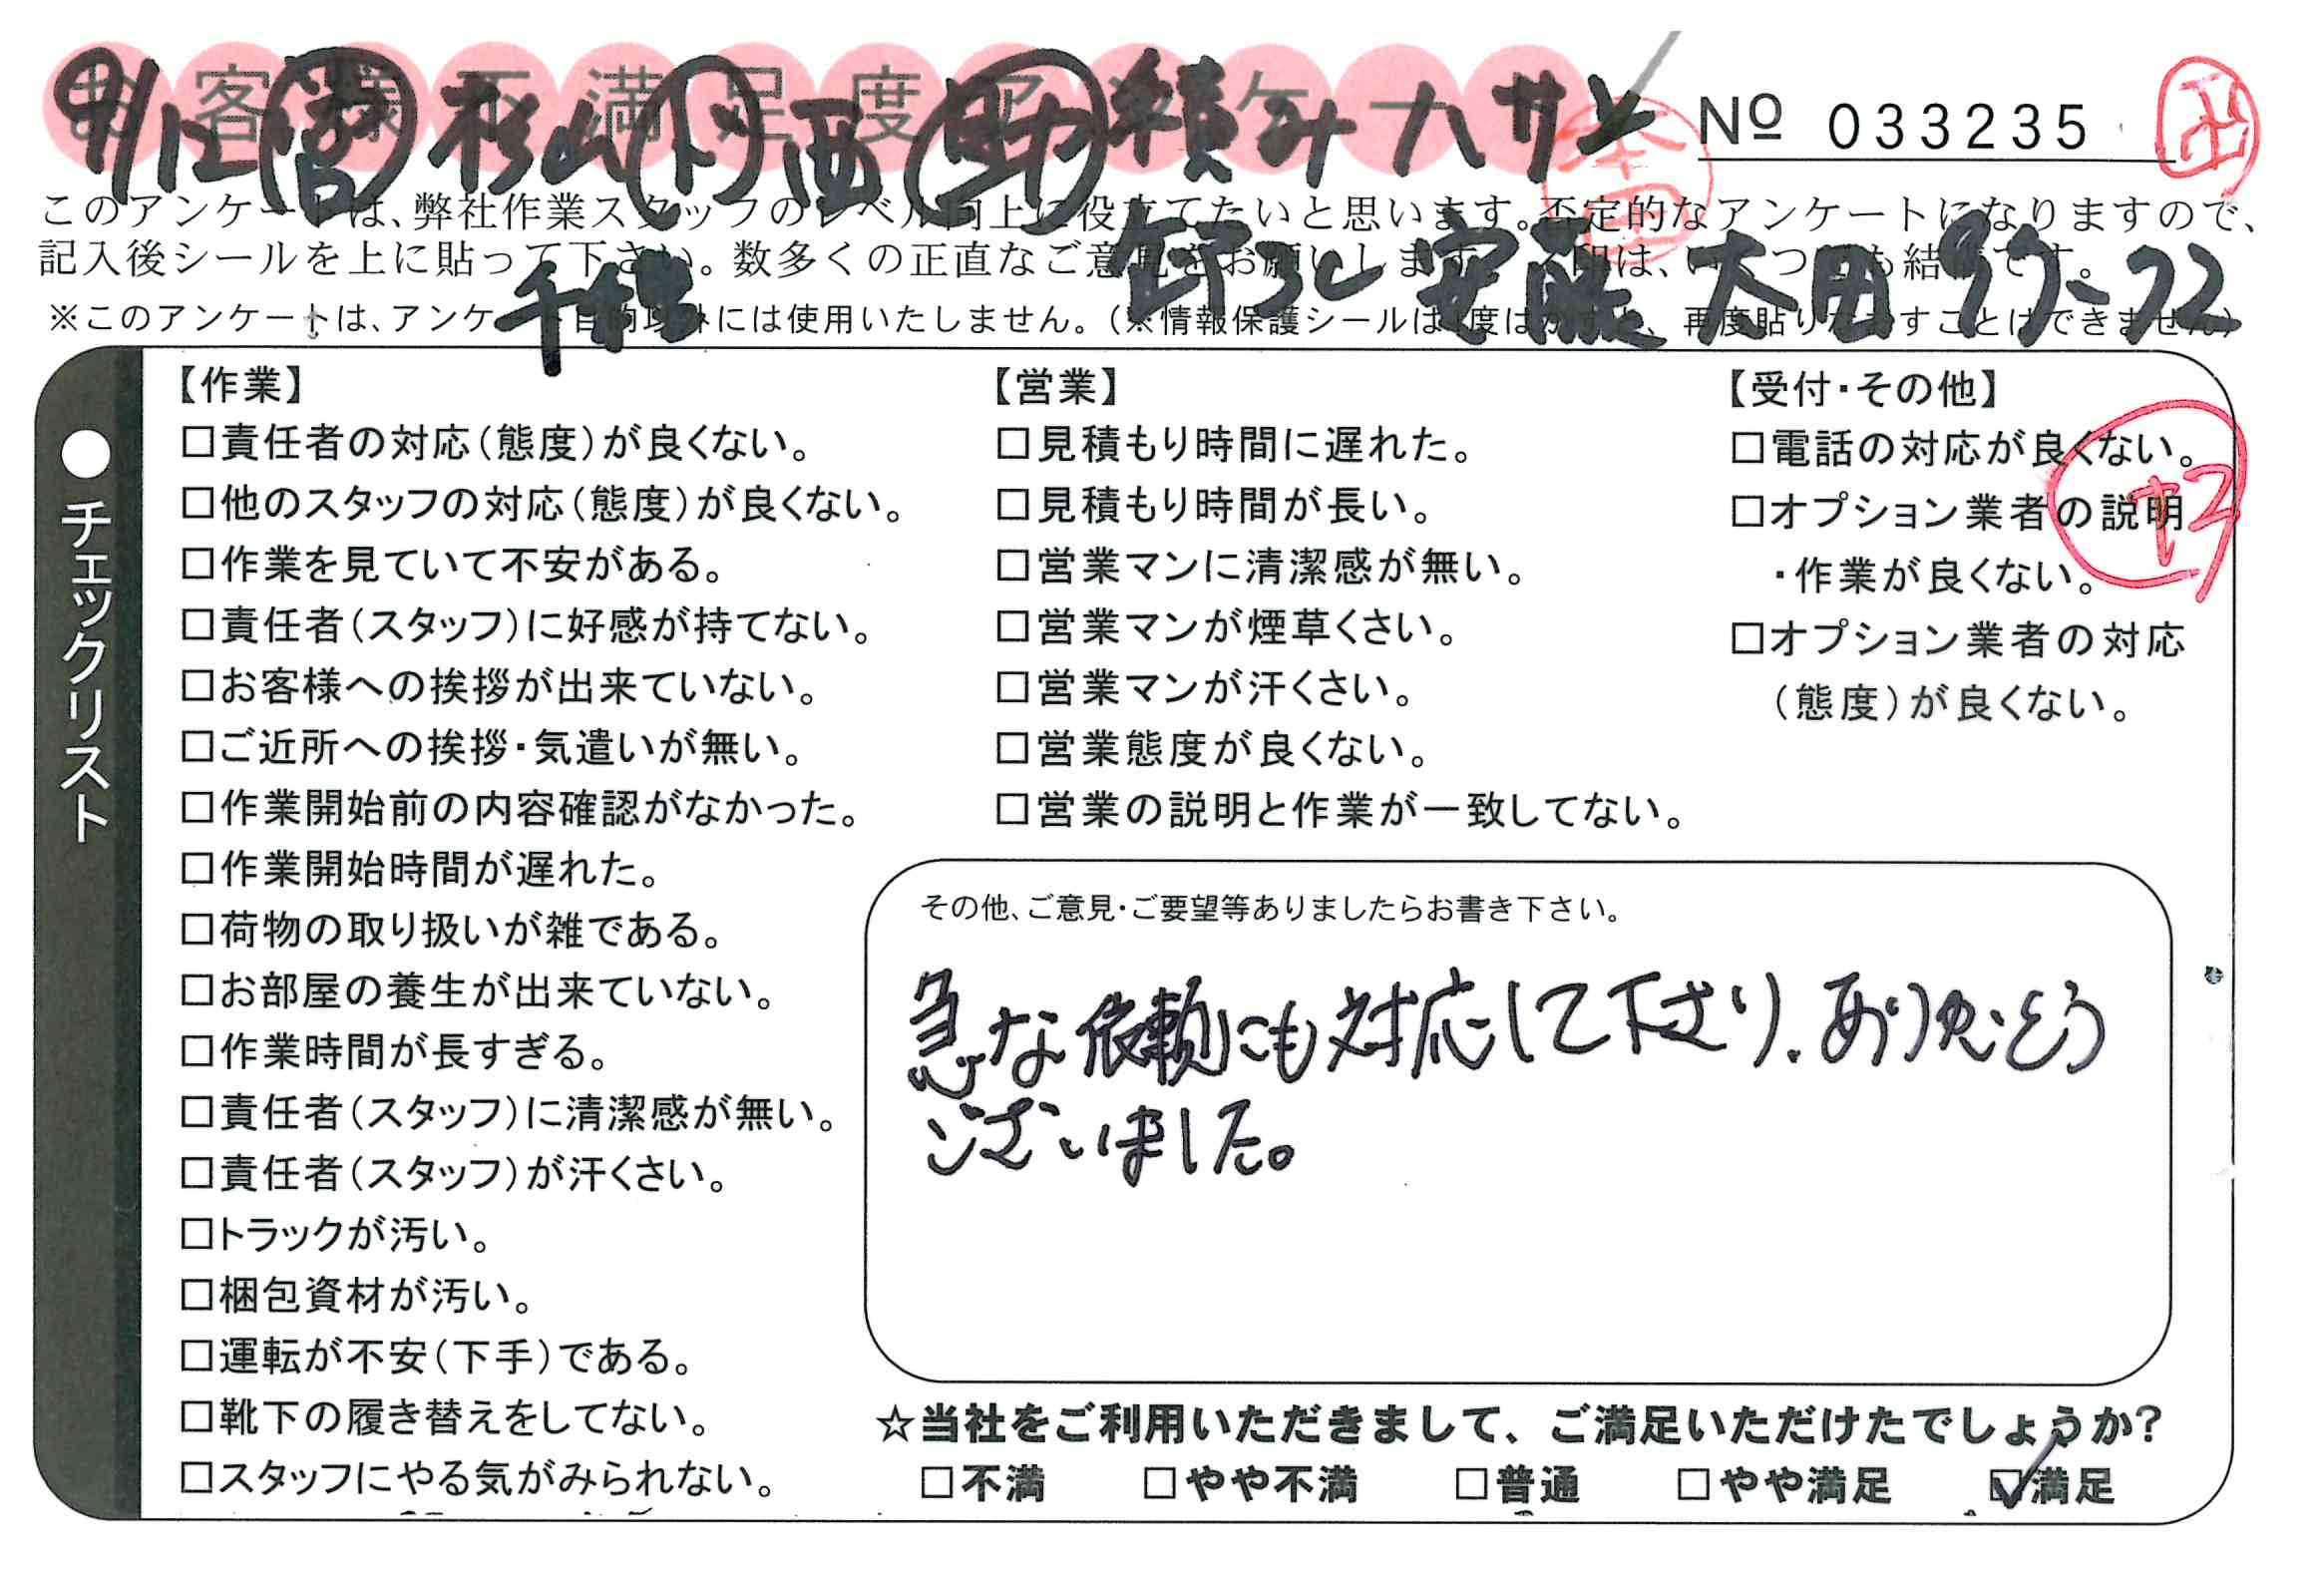 お客様不満足度アンケート
9/12 杉山 西 積み 八サと
№ 033235
このアンケートは、弊社作業スタッフのレベル向上に役立てたいと思います。否定的なアンケートになりますので、
千葉 安藤 太田 97-72
記入後シールを上に貼って下さい。数多くの正直なご意見をお願いします。 は、いくつでも結構です。
※このアンケートは、アンケート目的以外には使用いたしません。(※情報保護シールは1度はがすと、再度貼りなおすことはできません)
●チェックリスト
【作業】
□責任者の対応(態度)が良くない。
□他のスタッフの対応(態度)が良くない。
□作業を見ていて不安がある。
□責任者(スタッフ)に好感が持てない。
□お客様への挨拶が出来ていない。
□ご近所への挨拶・気遣いが無い。
□作業開始前の内容確認がなかった。
□作業開始時間が遅れた。
□荷物の取り扱いが雑である。
□お部屋の養生が出来ていない。
□作業時間が長すぎる。
□責任者(スタッフ)に清潔感が無い。
□責任者(スタッフ)が汗くさい。
□トラックが汚い。
□梱包資材が汚い。
□運転が不安(下手)である。
□靴下の履き替えをしてない。
□スタッフにやる気がみられない。
【営業】
□見積もり時間に遅れた。
□見積もり時間が長い。
□営業マンに清潔感が無い。
□営業マンが煙草くさい。
□営業マンが汗くさい。
□営業態度が良くない。
□営業の説明と作業が一致してない。
【受付・その他】
□電話の対応が良くない。
□オプション業者の説明
・作業が良くない。
□オプション業者の対応
(態度)が良くない。
その他、ご意見・ご要望等ありましたらお書き下さい。
急な依頼にも対応して下さり、ありがとう
ございました。
☆当社をご利用いただきまして、ご満足いただけたでしょうか?
□不満 □やや不満 □普通 □やや満足 ☑満足